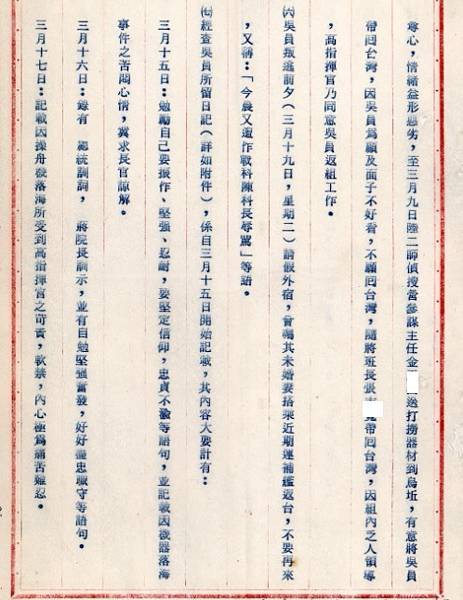 尋心，情緒益形惡劣，至三月九日陸二師偵搜營參謀主任金 送打撈器材到烏坵，有意將吳員
帶回台灣，因吳員爲顧及面子不好看，不願回台灣，隨將班長張 帶回台灣，因組內乏人領導
，高指揮官乃同意吳員返組工作。
㈥吳員叛逃前夕（三月十九日，星期二）請假外宿，曾囑其未婚妻搭乘近期運補艦返台，不要再來
，又稱：「今晨又遭作戰科陳科長辱罵」等語。
㈦經查吳員所留日記（詳如附件），係自三月十五日開始記載，其內容大要計有：
三月十五日：勉勵自己要振作、堅強、忍耐，要堅定信仰，忠貞不渝等語句，並記載因機器落海
事件之苦悶心情，冀求長官諒解。
三月十六日：錄有 總統訓詞， 蔣院長訓示，並有自勉堅強奮發，好好盡忠職守等語句。
三月十七日：記載因操舟機落海所受到高指揮官之苛責，軟禁，內心極爲痛苦難忍。